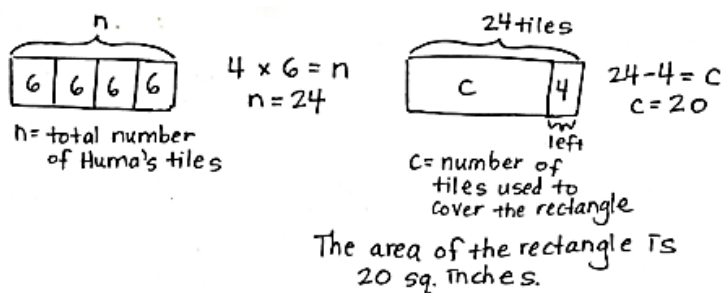 n
6 6 6 6
n= total number
of Huma's tiles
4 x 6 = n
n = 24
24 tiles
C 4
left
C= number of
tiles used to
cover the rectangle
24-4 = C
C = 20
The area of the rectangle is
20 sq. inches.